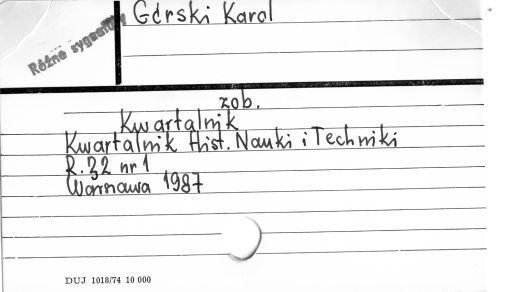 Górski Karol
Różne sygnatury
zob.
Kwartalnik
Kwartalnik Hist. Nauki i Techniki
R. 32 nr 1
Warszawa 1987
DUJ 1018/74 10 000